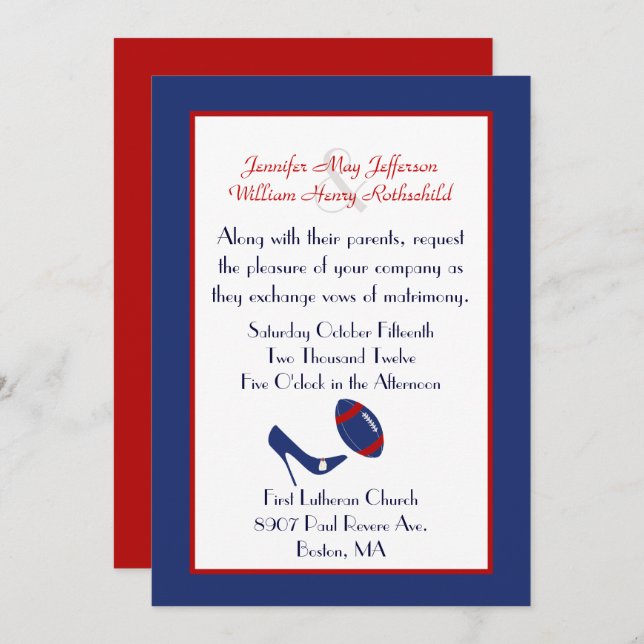 Jennifer May Jefferson
&
William Henry Rothschild
Along with their parents, request
the pleasure of your company as
they exchange vows of matrimony.
Saturday October Fifteenth
Two Thousand Twelve
Five O'clock in the Afternoon
First Lutheran Church
8907 Paul Revere Ave.
Boston, MA